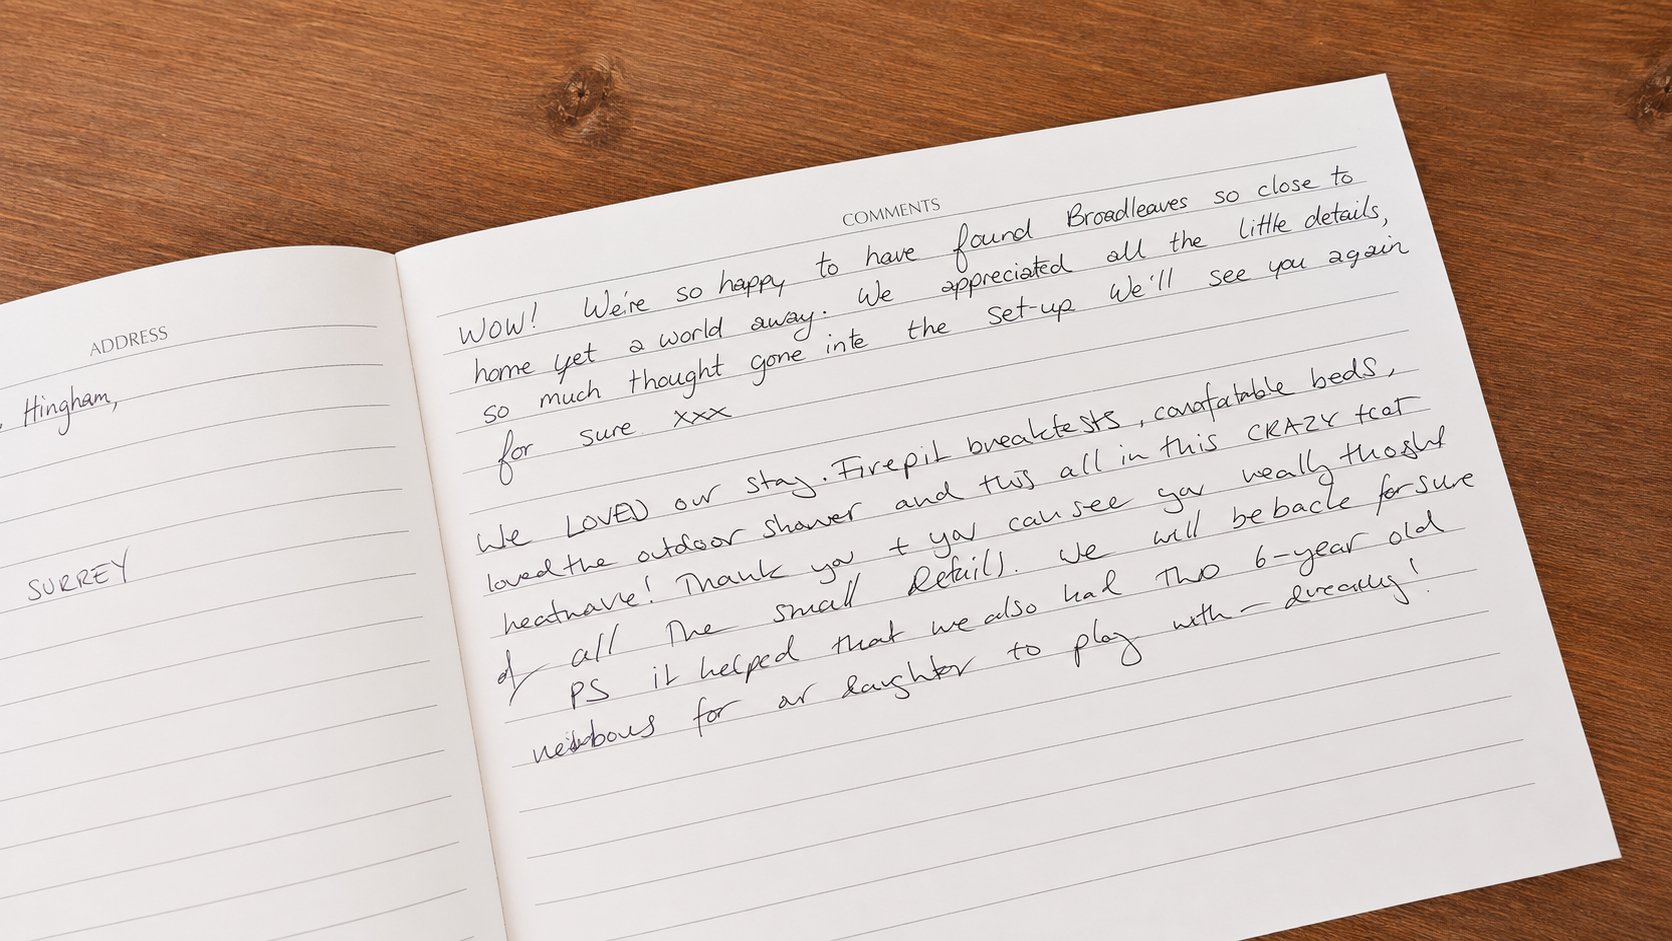 ADDRESS
Hingham,
SURREY
COMMENTS
WOW! We're so happy to have found Broadleaves so close to
home yet a world away. We appreciated all the little details,
so much thought gone into the set-up We'll see you again
for sure. xxx
We LOVED our stay. Firepit breaktests, comofatable beds,
loved the outdoor shower and this all in this CRAZY
heatnave! Thank you + you can see you really thoght
of all The small details. We will be back for sure
PS it helped that we also had TWO 6-year old
for our daughter to play with -